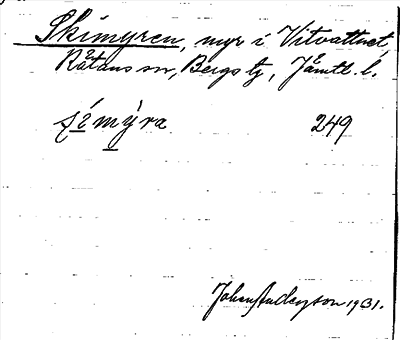 Skimyren, myr i Vitvattnet,
Rätans sn, Bergs tg, Jämtl. l.
249
John Anderson 1931.